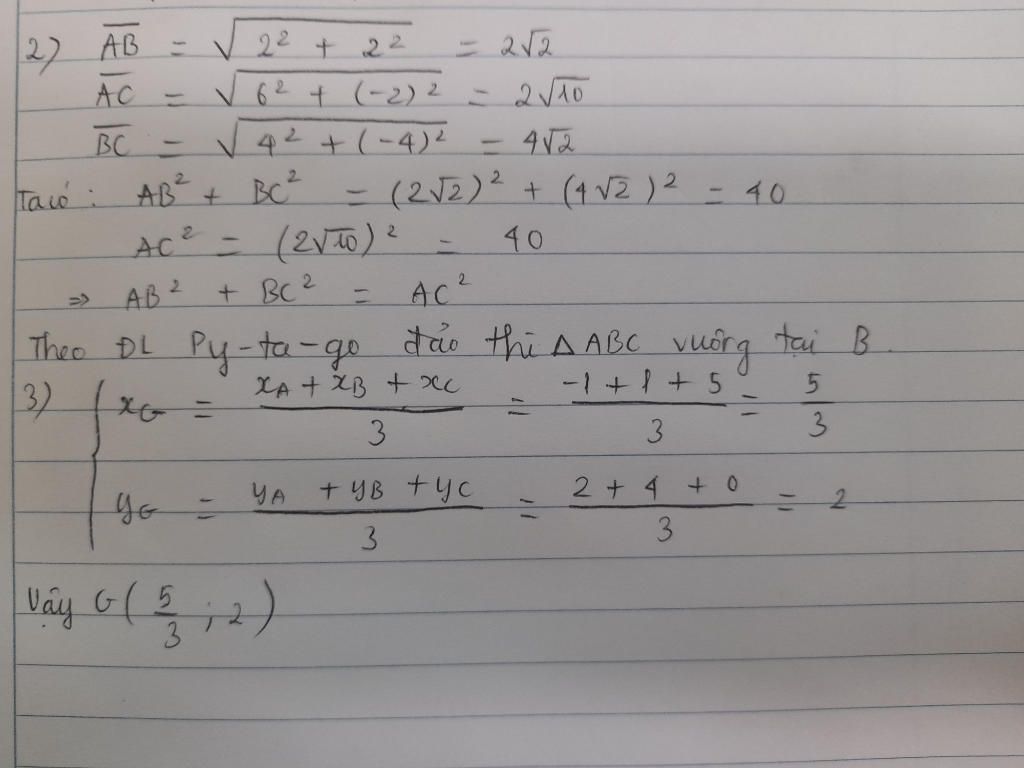 2) AB̅ = √(2² + 2²) = 2√2
AC̅ = √(6² + (-2)²) = 2√10
BC̅ = √(4² + (-4)²) = 4√2
Ta có : AB² + BC² = (2√2)² + (4√2)² = 40
AC² = (2√10)² = 40
⇒ AB² + BC² = AC²
Theo ĐL Py-ta-go đảo thì △ABC vuông tại B.
3) { x_G = (x_A + x_B + x_C)/3 = (-1 + 1 + 5)/3 = 5/3
y_G = (y_A + y_B + y_C)/3 = (2 + 4 + 0)/3 = 2
Vậy G(5/3 ; 2)